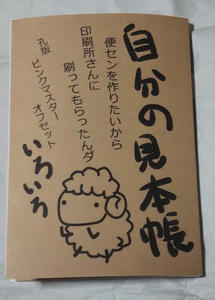 自分の見本帳
いろいろ
便センを作りたいから
印刷所さんに
刷ってもらったんダ
孔版 ピンクマスター オフセット